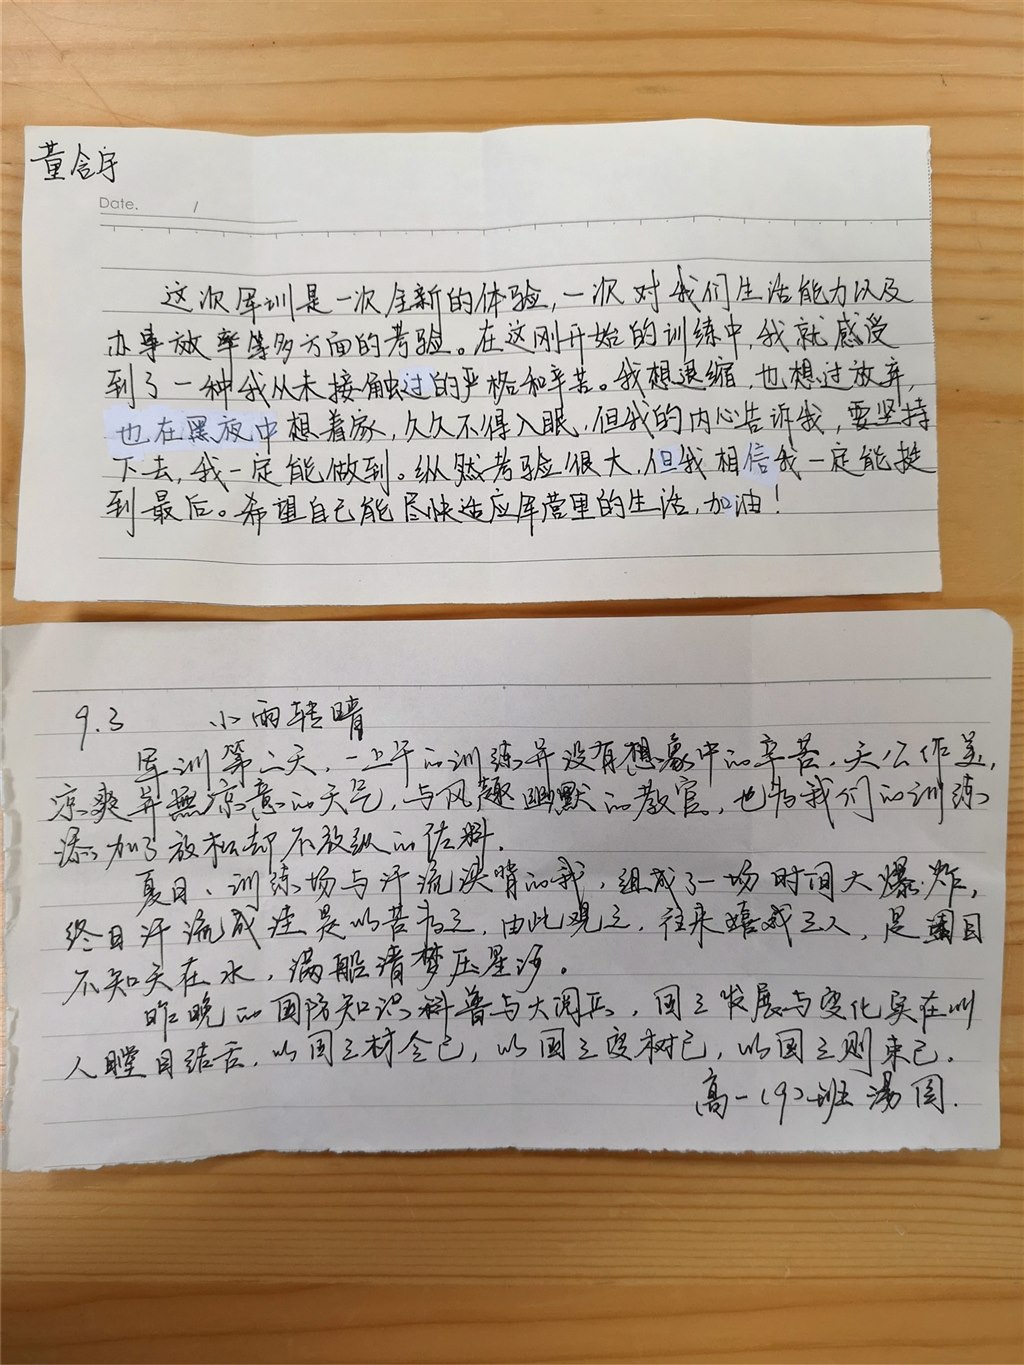 董含宇
Date. /
这次军训是一次全新的体验,一次对我们生活能力以及
办事放率等多方面的考验。在这刚开始的训练中,我就感受
到了一种我从未接触过的严格和辛苦。我想退缩,也想过放弃,
也在黑夜中想着家,久久不得入眠,但我的内心告诉我,要坚持
下去,我一定能做到。纵然考验很大,但我相信我一定能挺
到最后。希望自己能尽快适应军营里的生活,加油!
9.3 小雨转晴
军训第二天,一上午的训练并没有想象中的辛苦,天公作美,
凉爽并無凉意的天气,与风趣幽默的教官,也为我们的训练
添加了放松却不放纵的佐料.
夏日、训练场与汗流浃背的我,组成了一场时间大爆炸,
终日汗流成洼是以苦为之,由此观之,往来嬉戏之人,是
不知天在水,满船清梦压星河。
昨晚的国防知识科普与大阅兵,国之发展与变化实在叫
人瞠目结舌,以国之材全己,以国之度树己,以国之则束己.
高一(9)班 汤圆.